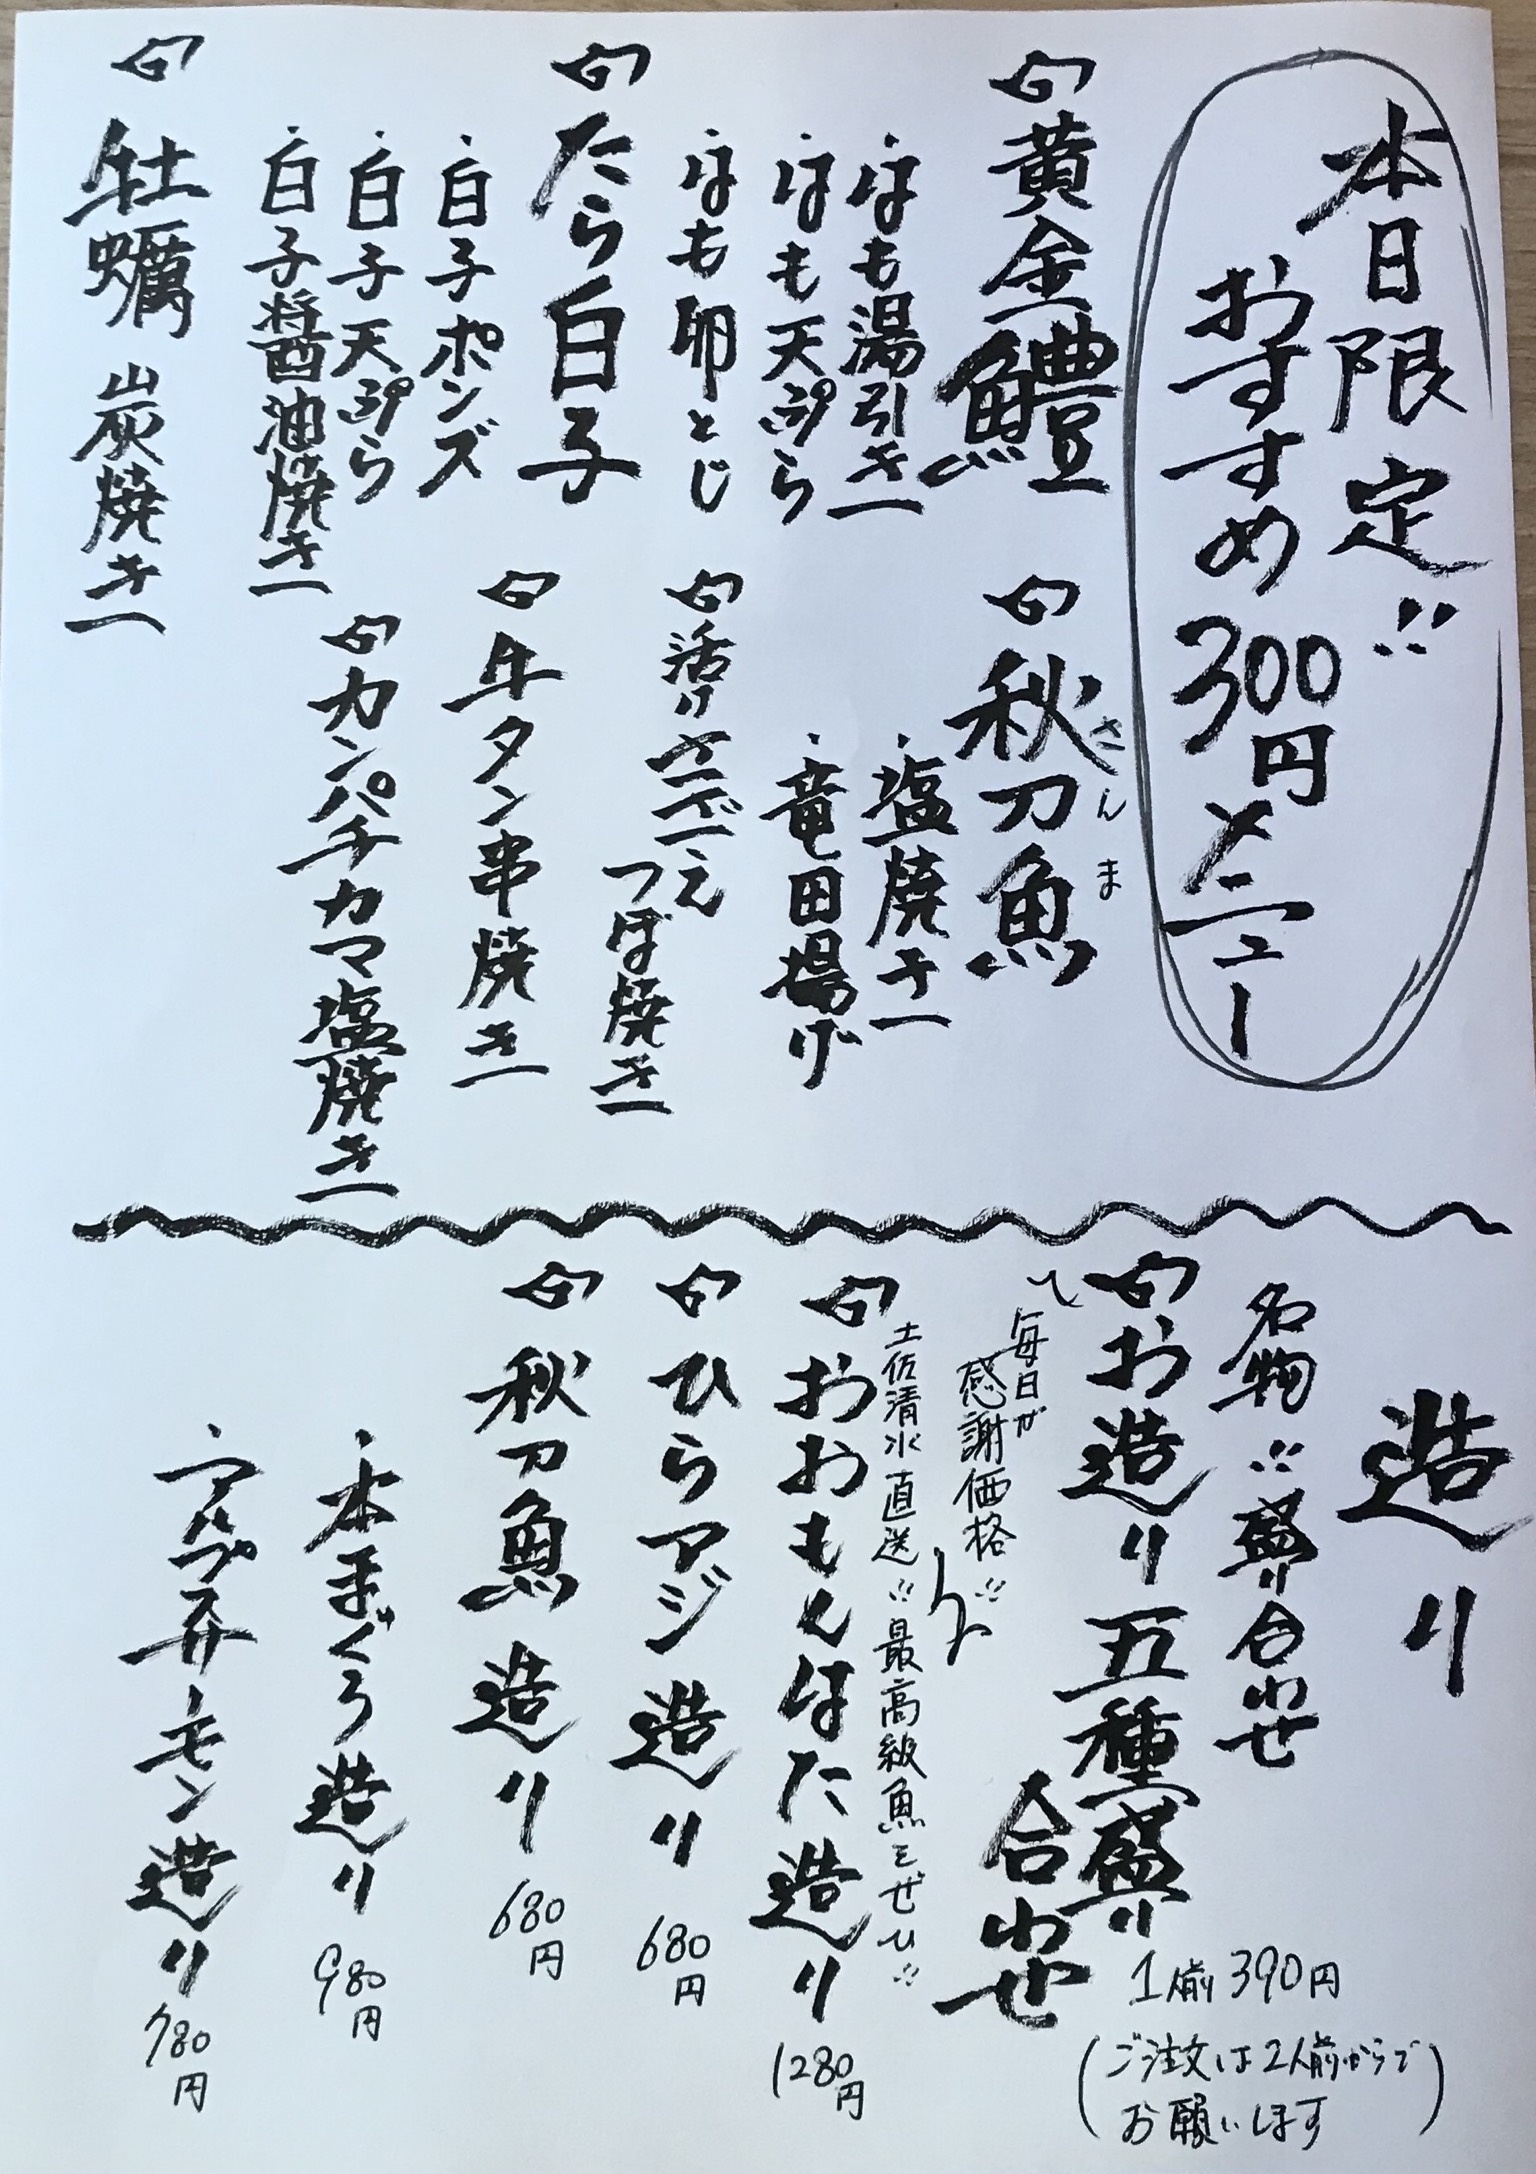 本日限定!!
おすすめ300円メニュー
黄金鱧
・はも湯引き
・はも天ぷら
・はも卵とじ
たら白子
・白子ポンズ
・白子天ぷら
・白子醤油焼き
牡蠣 炭焼き
秋刀魚
さんま
・塩焼き
・竜田揚げ
活けさざえ
つぼ焼き
牛タン串焼き
カンパチカマ塩焼き
造り
名物!!盛り合わせ
お造り五種盛り
合わせ
1人前390円
(ご注文は2人前からで
お願いします)
毎日が
感謝価格!!
土佐清水直送!!最高級魚をぜひ!!
おおもんはた造り 1280円
ひらアジ造り 680円
秋刀魚造り 680円
・本まぐろ造り 980円
・アルプスサーモン造り 780円